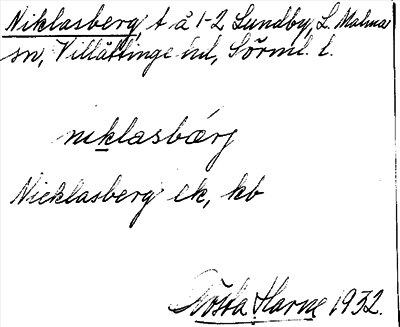 Niklasberg, t å 1-2 Lundby, L. Malma
sn, Villåttinge hd, Sörml. l.
niklasbærj
Nicklasberg ek, kb
Gösta Harne 1932.